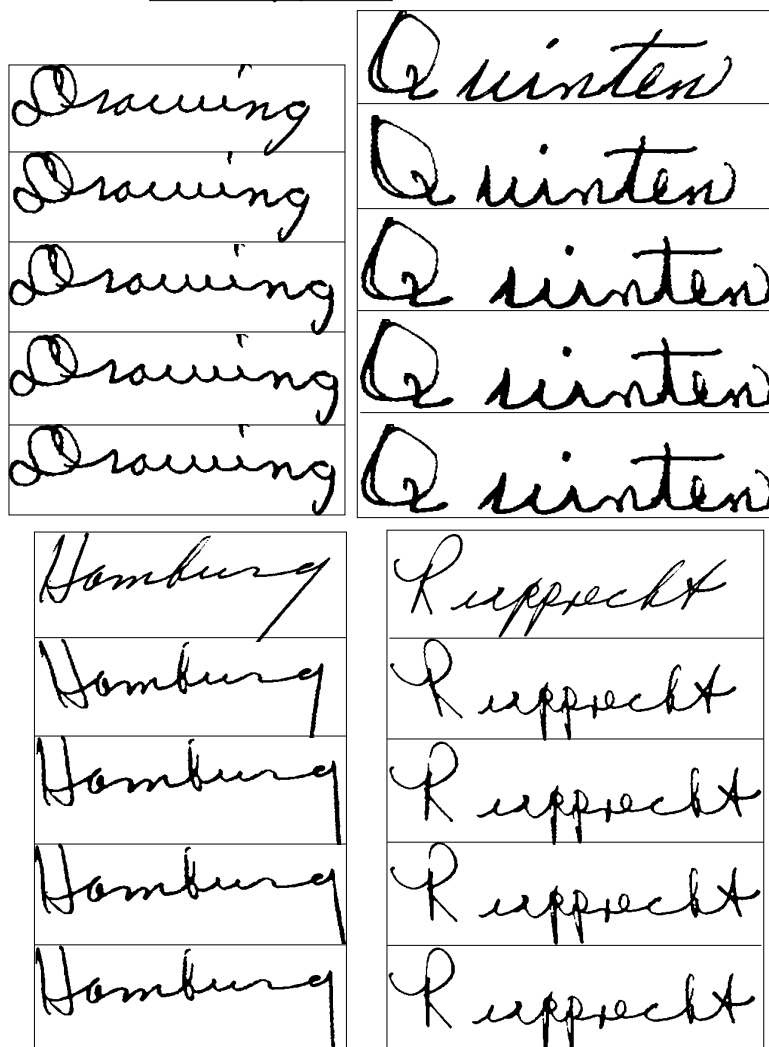 Drawing
Drawing
Drawing
Drawing
Drawing
Quinten
Quinten
Quinten
Quinten
Quinten
Hamburg
Hamburg
Hamburg
Hamburg
Hamburg
Rupprecht
Rupprecht
Rupprecht
Rupprecht
Rupprecht